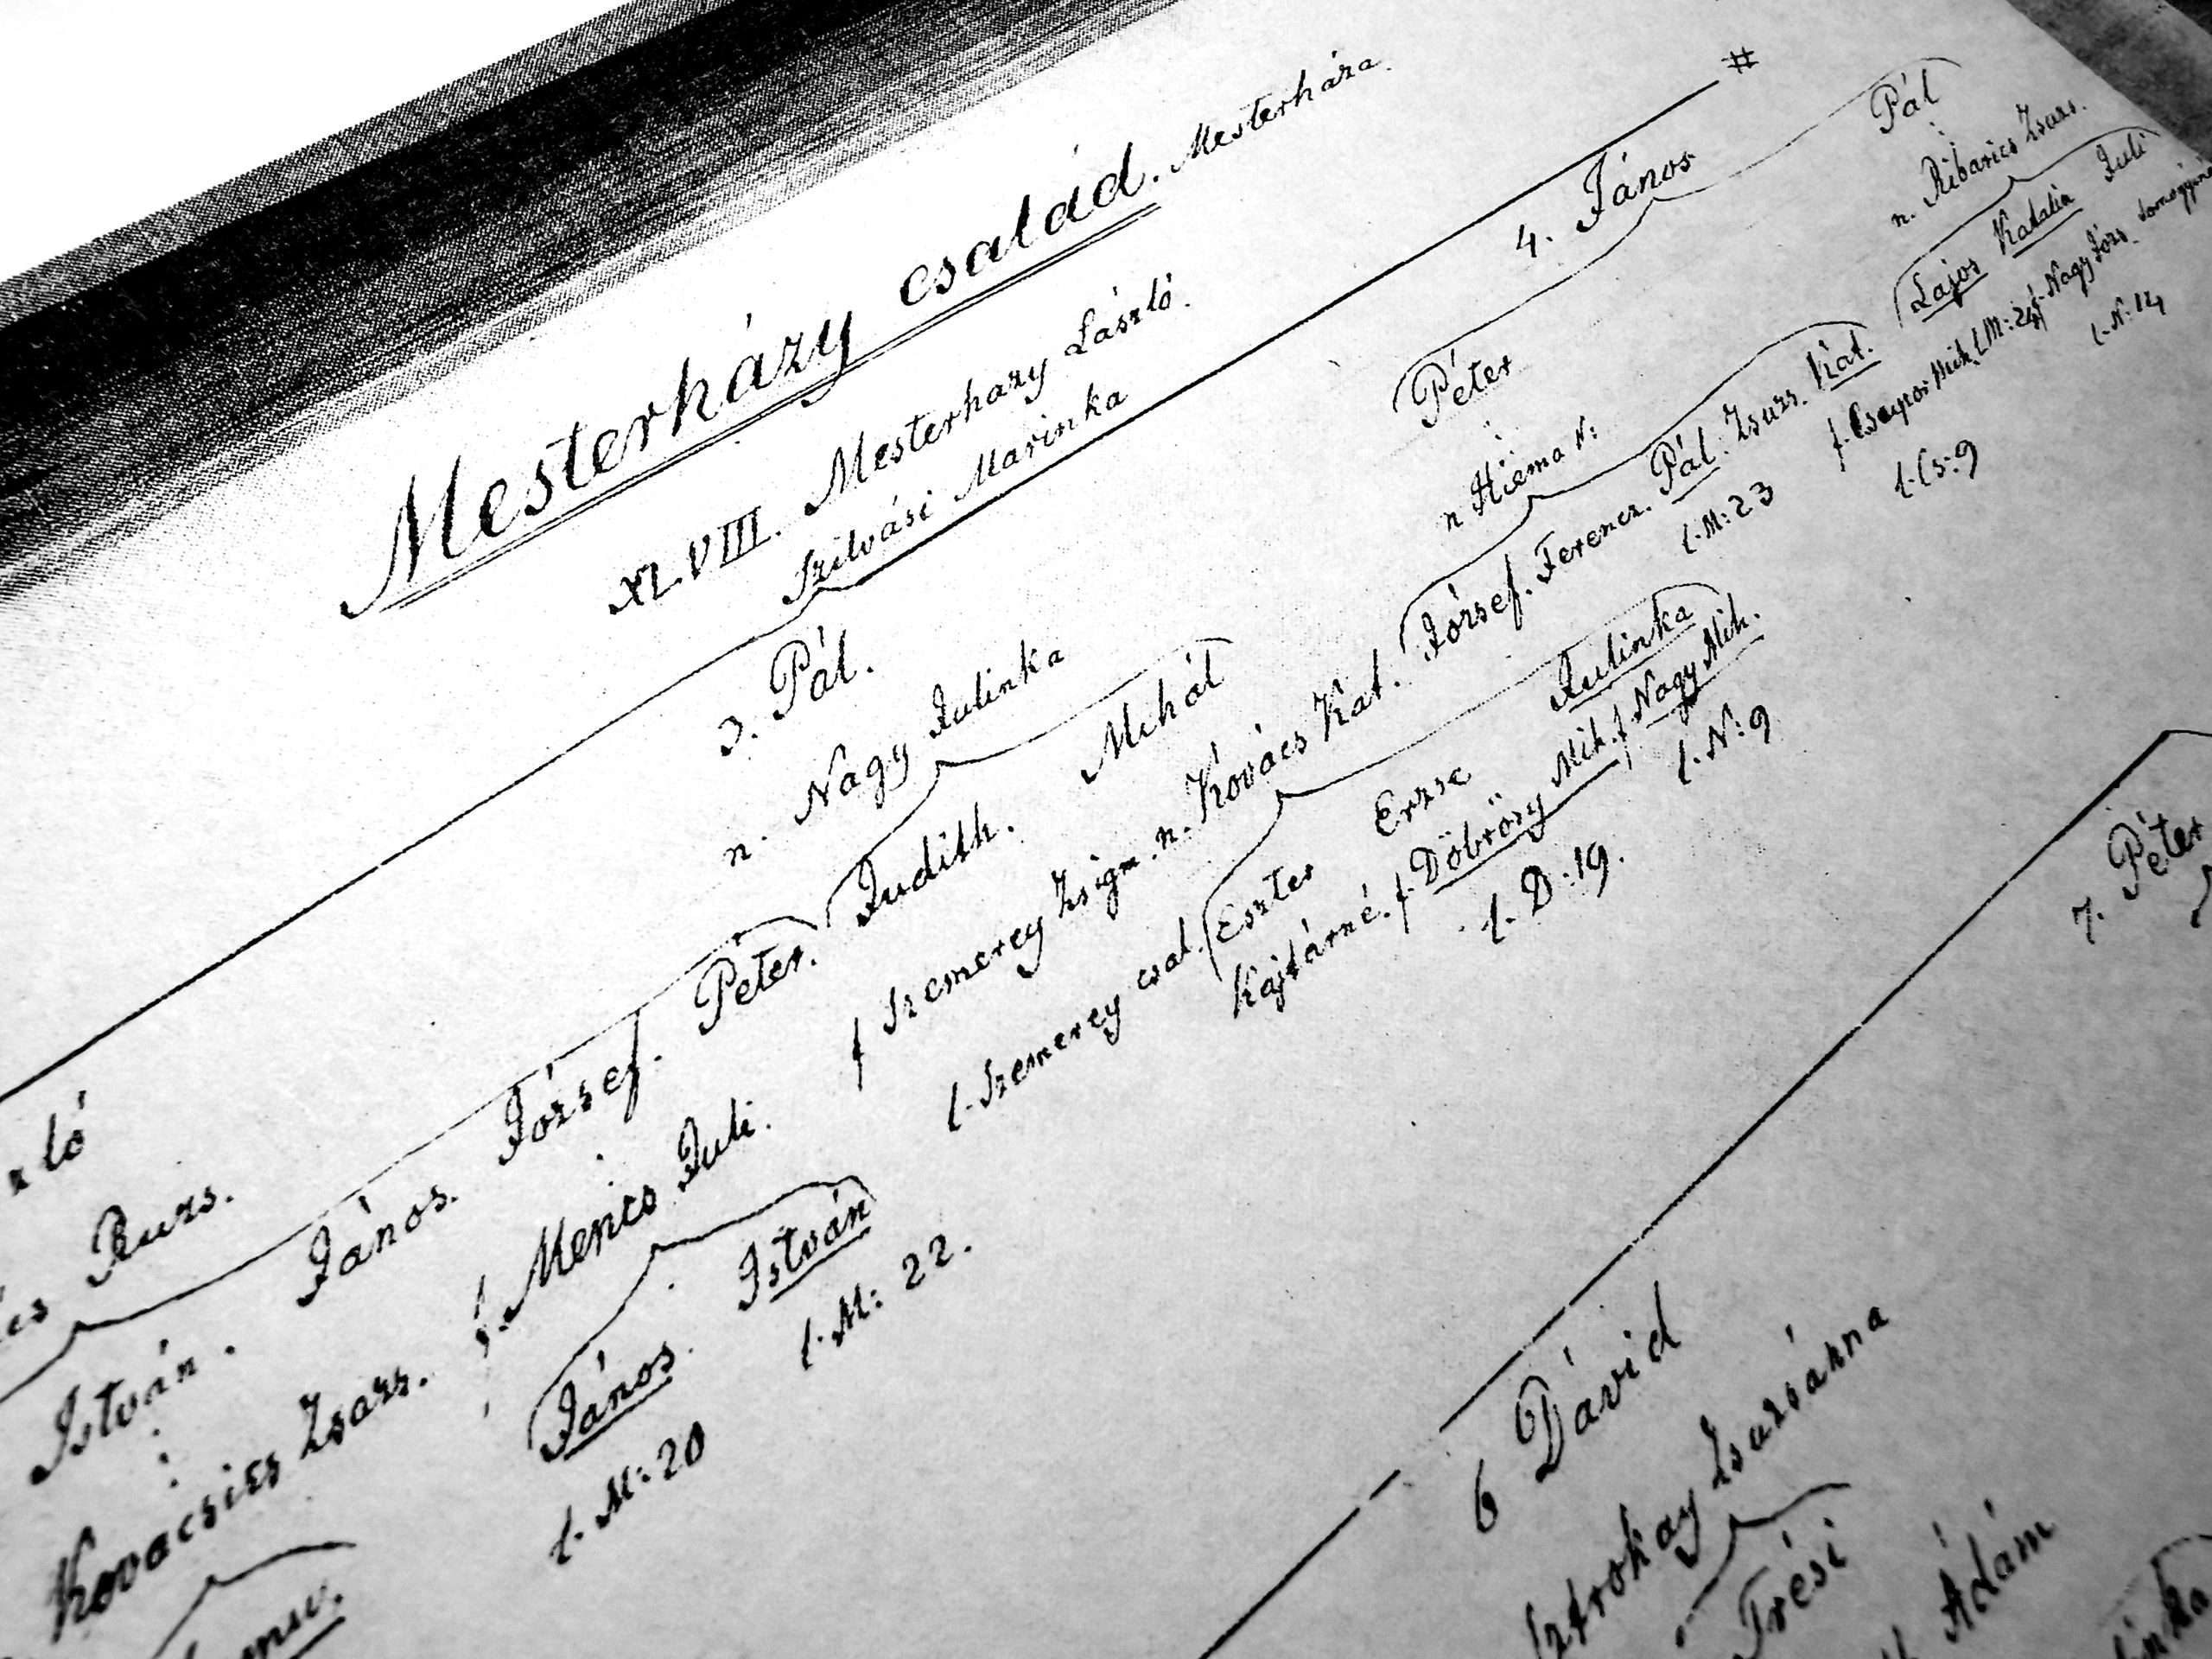 Mesterházy család. Mesterháza.
XLVIII. Mesterhazy László.
Szilvási Marinka
#
3. Pál.
n. Nagy Julinka
4. János
Péter
n Hiema N:
Pál
n. Ribarics Zsuzs.
Lajos Katalin Juli
f. Csapos Mih. l. M: 24 f. Nagy Józs.
l. Cs: 9
l. N: 14
József. Ferencz. Pál. Zsuzs. Kat.
l. M: 23
Péter. Judith. Mihál
f Szemerey Zsigm. n. Kovács Kat.
l. Szemerey csal. Eszter Erzse Julinka
Kajtárné. f. Döbrösy Mih. f. Nagy Mih.
l. D: 19.
l. N: 9
zló
cs Ruzs.
István. János. József.
Kovacsics Zsuzs. f. Mencs Juli.
János. István
l. M: 20
l. M: 22.
6 Dávid
Sztrokay Zsuzsánna
Trési
Ádám
7. Péter
inka